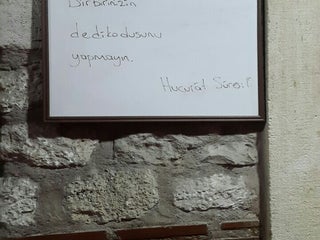 Birbirinizin
dedikodusunu
yapmayın.
Hucurât Sûresi